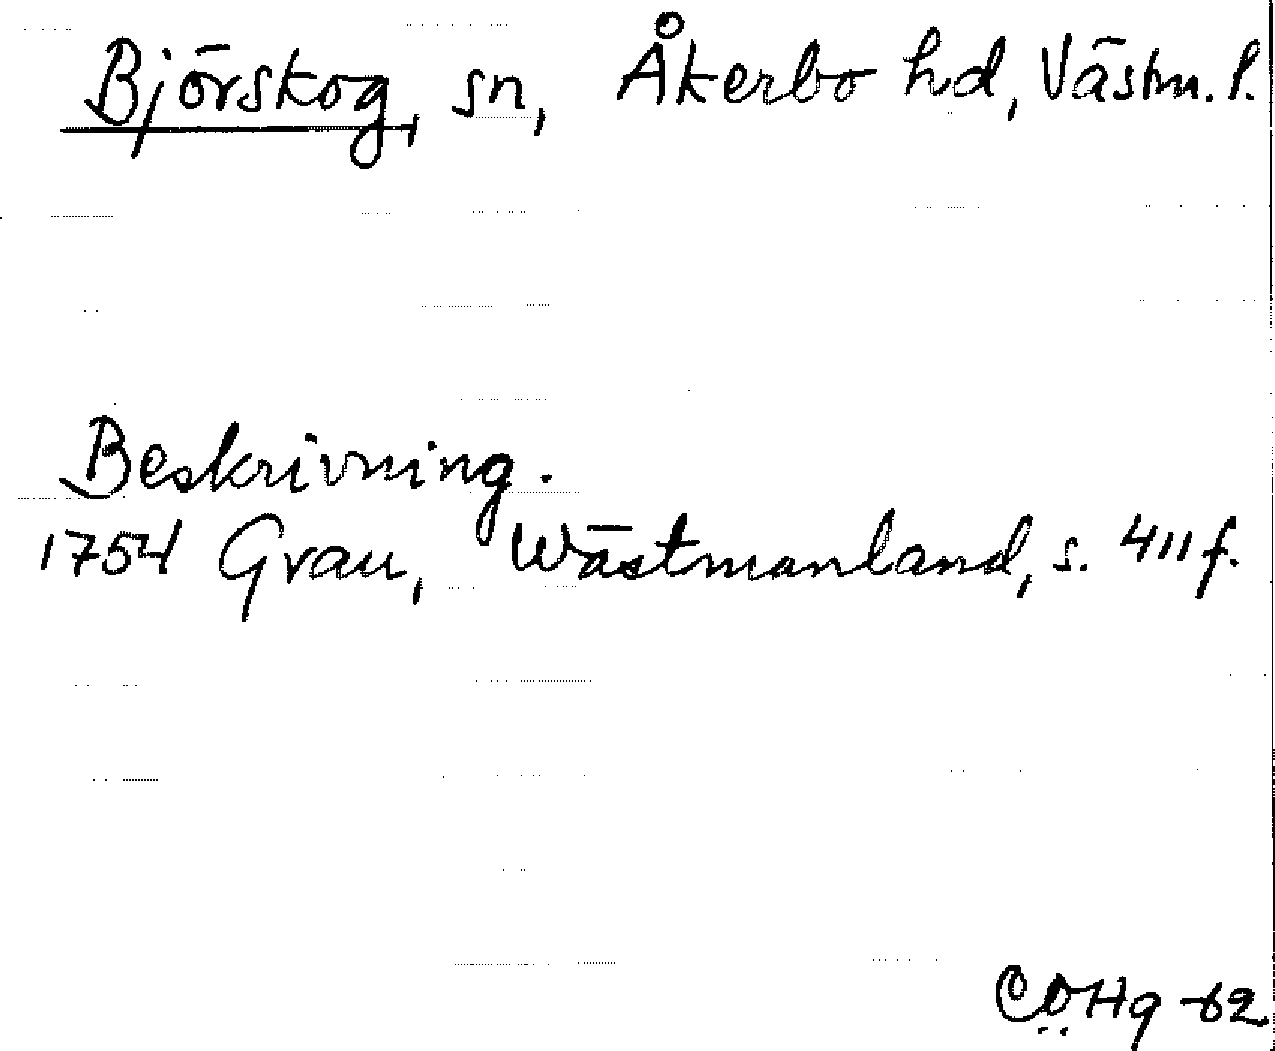 Björskog, sn, Åkerbo hd, Västm. l.
Beskrivning.
1754 Grau, Wästmanland, s. 411 f.
CÖHg -62